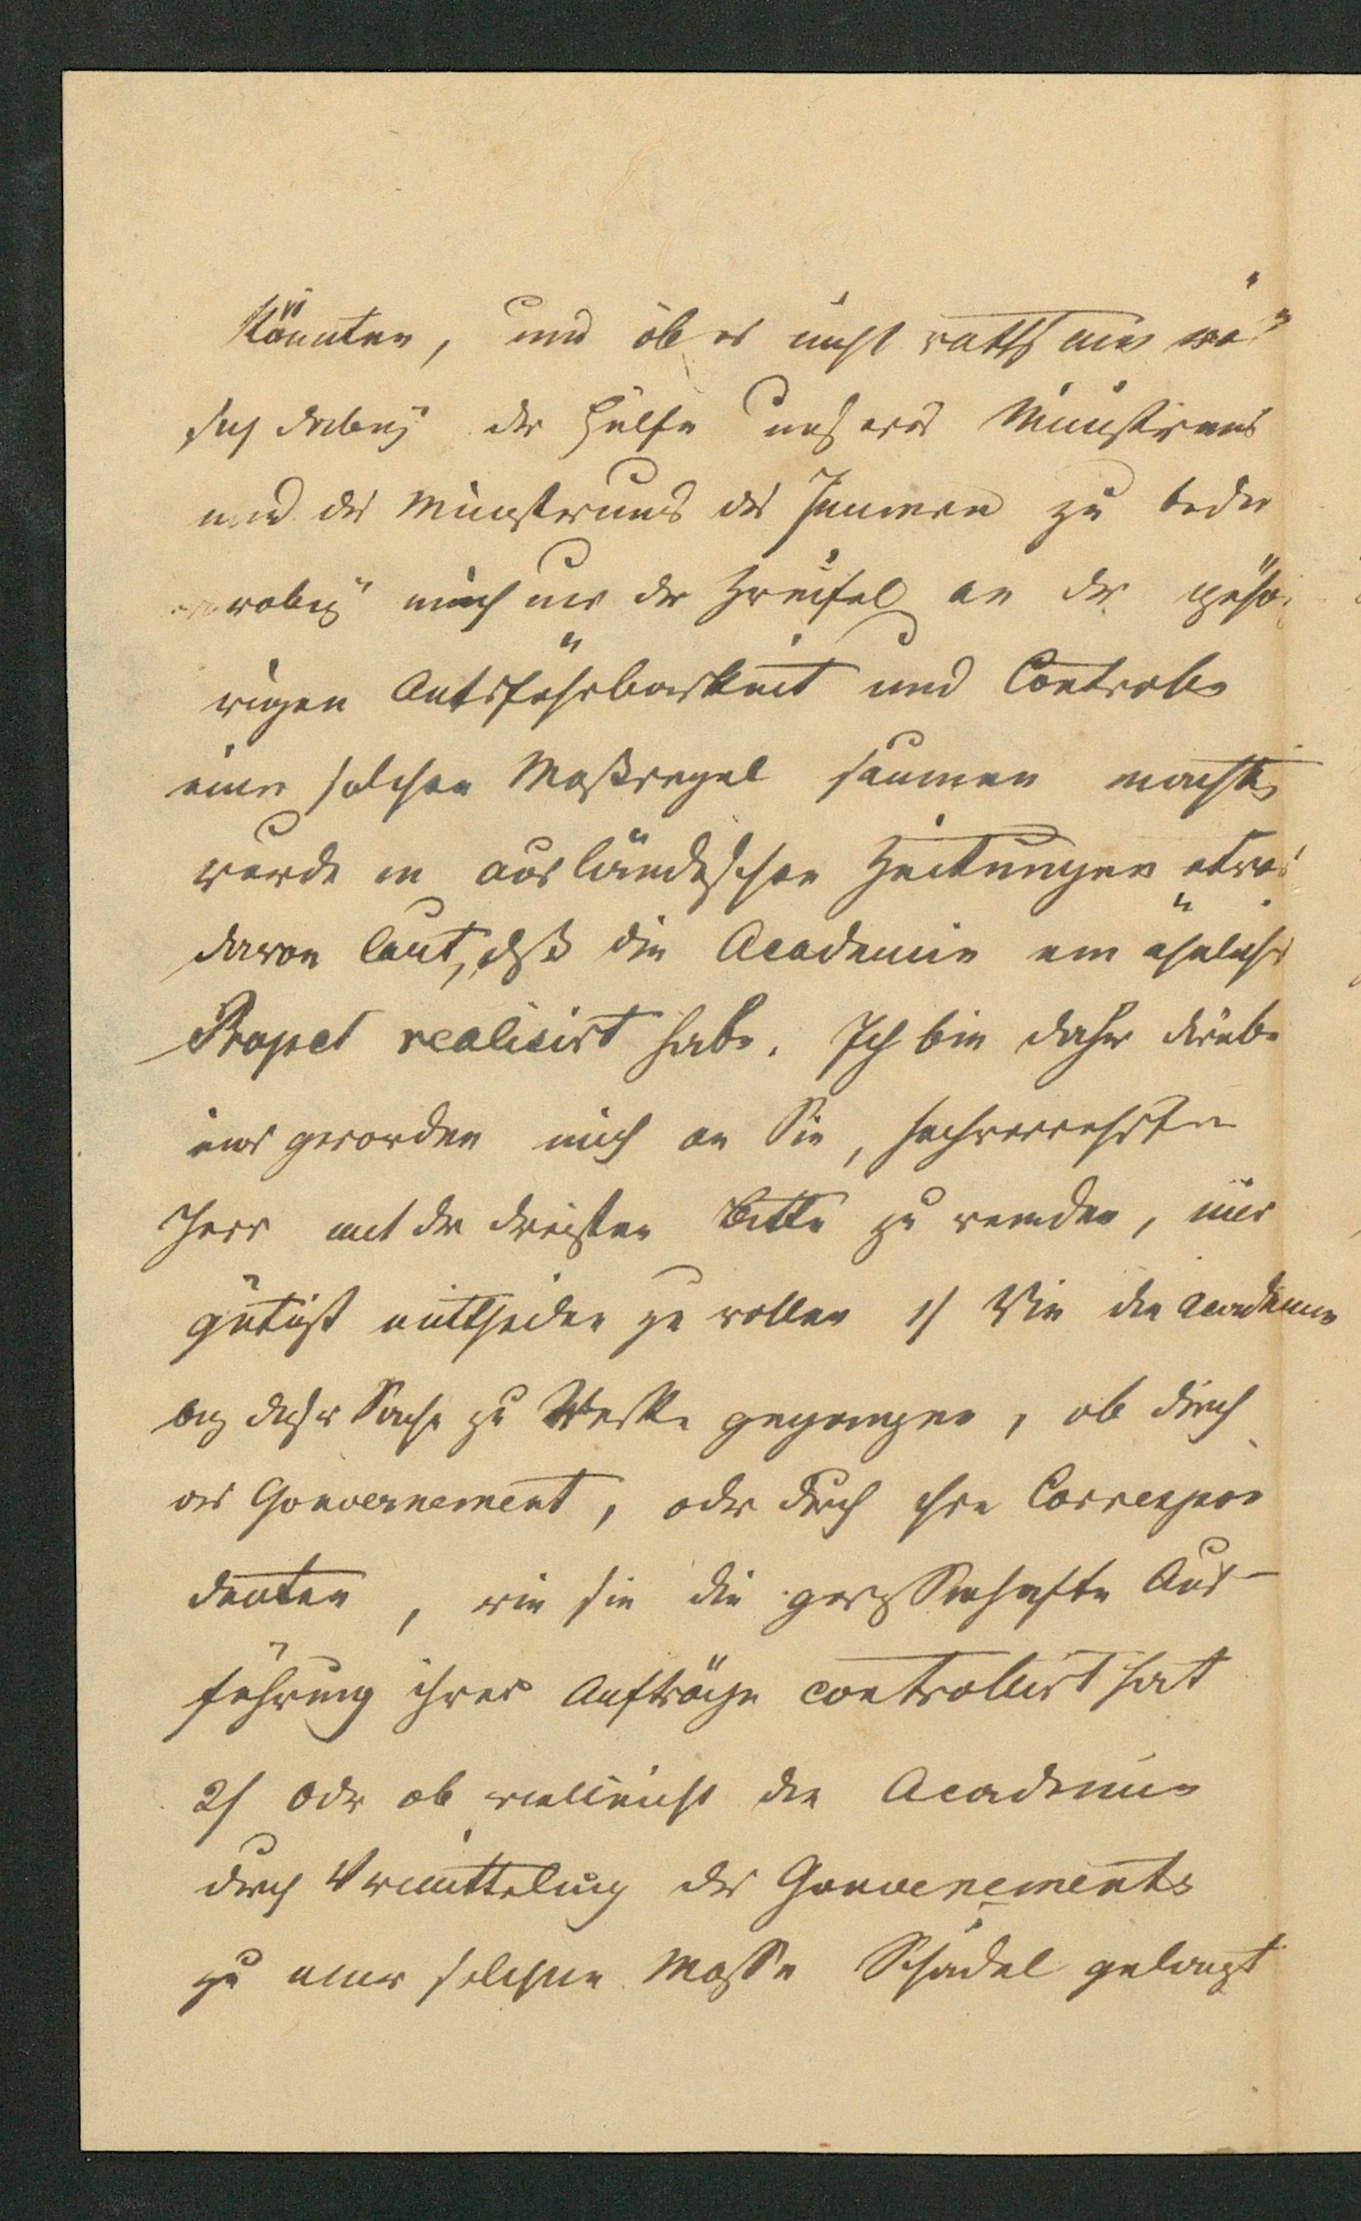 könnten, und ob es nicht rathsam wä
sich dabey der Hülfe unseres Ministeriums
und des Ministeriums des Inneren zu bedie
wobey mich nur der Zweifel an der gehö-
rigen Ausführbarkeit und Controle
einer solchen Maßregel säumen machte
wurde in ausländischen Zeitungen etwas
davon laut, daß die Academie ein ähnliches
Project realisirt habe. Ich bin daher
geworden mich an Sie, hochverehrter
Herr mit der dreisten Bitte zu wenden, mir
gütigst mittheilen zu wollen 1/ Wie die Academie
bey dieser Sache zu Werke gegangen, ob durch
das Gouvernement, oder durch ihre Correspon
denten, wie sie die gewissenhafte Aus-
führung ihrer Aufträge controllirt hat
2/ Oder ob vielleicht die Academie
durch Vermittelung des Gouvenements
zu einer solchen Masse Schädel gelangt